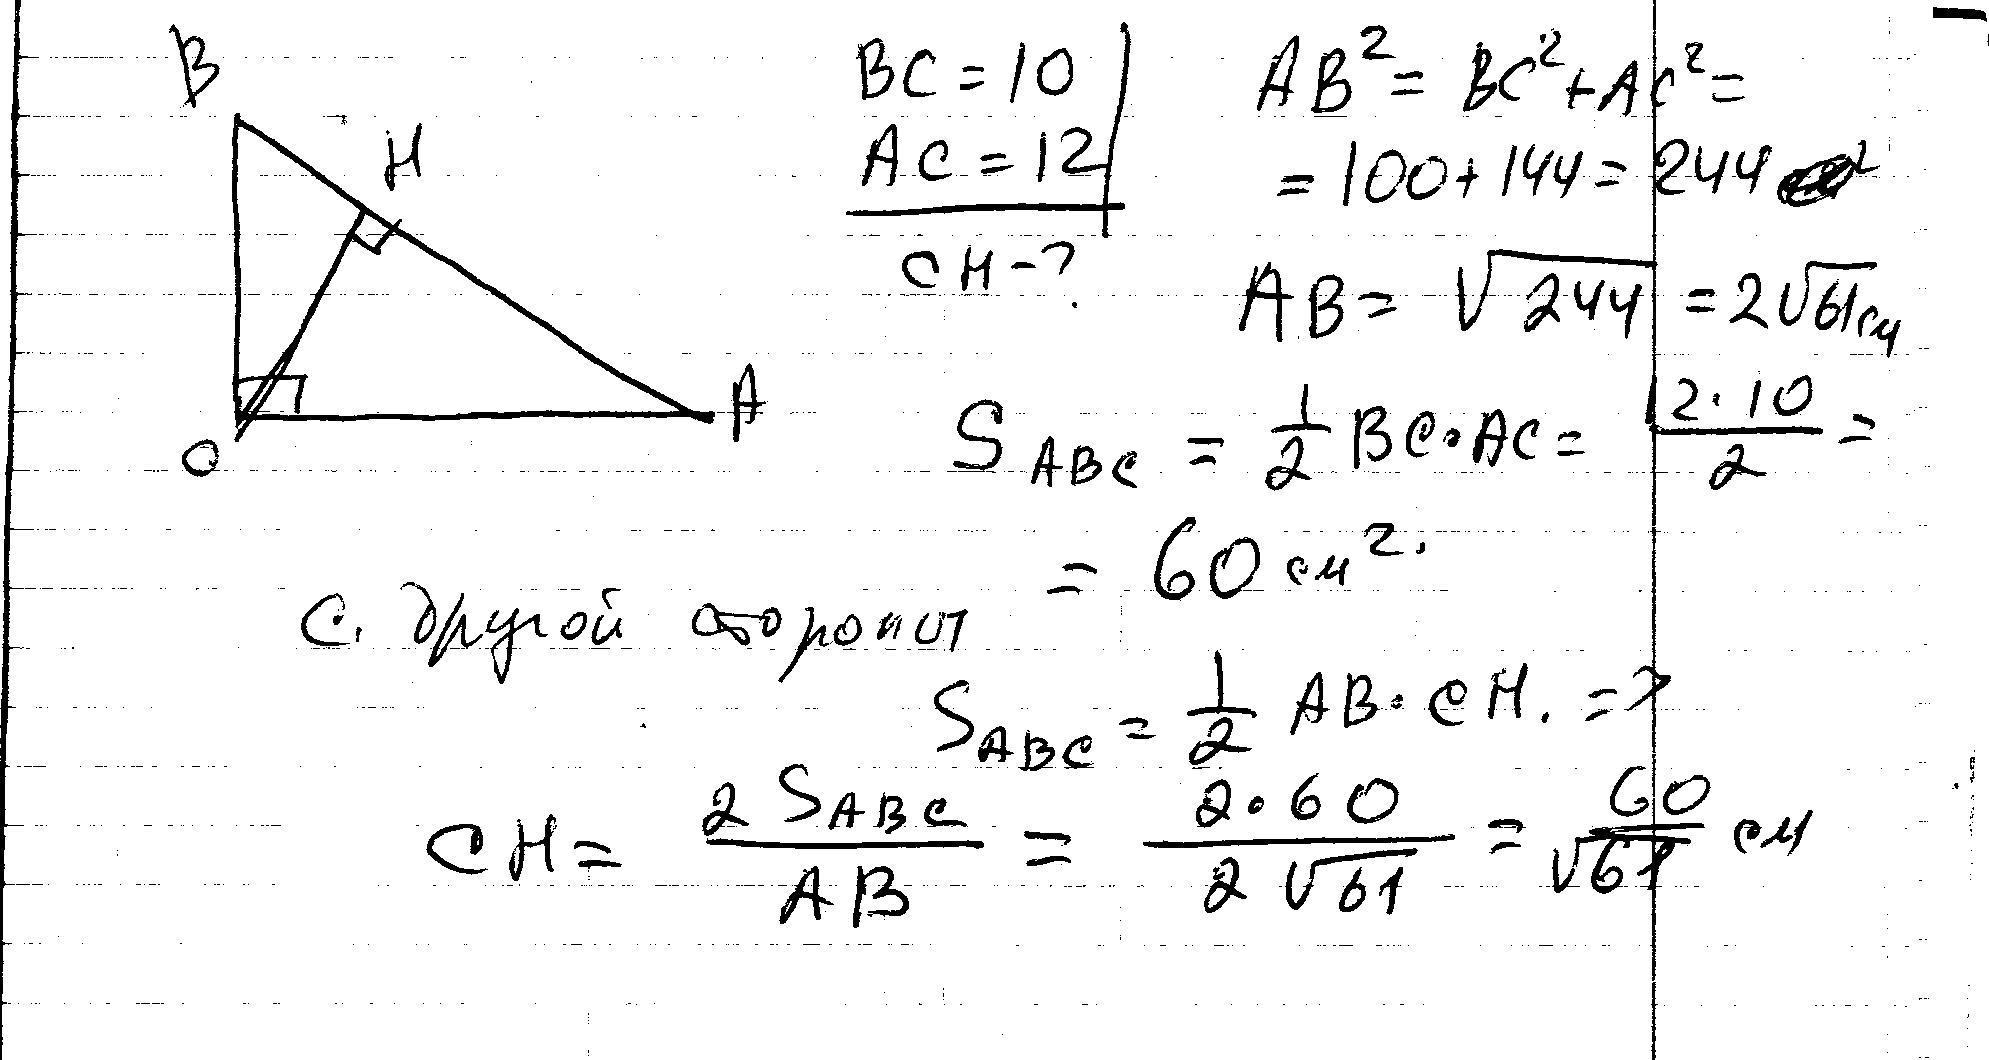 B
H
A
C
BC = 10
AC = 12
CH - ?
AB² = BC² + AC² =
= 100 + 144 = 244
AB = √244 = 2√61 см
S ABC = 1/2 BC · AC = 12 · 10 / 2 =
= 60 см².
С. другой стороны
S ABC = 1/2 AB · CH. =>
CH = 2 S ABC / AB = 2 · 60 / 2√61 = 60 / √61 см